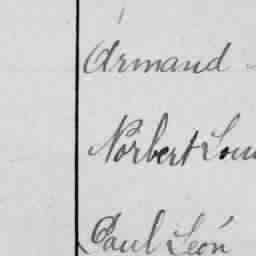 Armand
Norbert Lou
Paul Léon